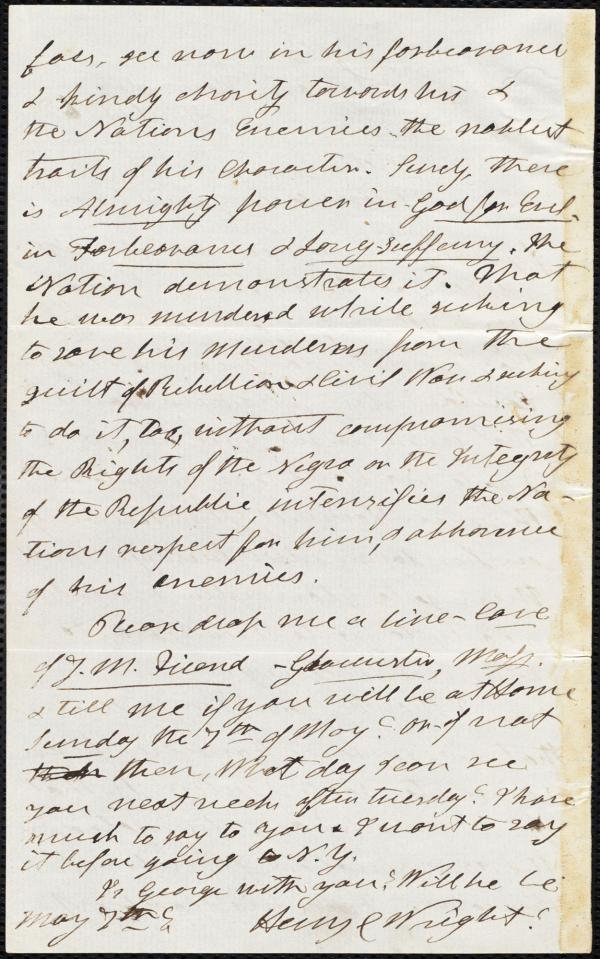 foes, see now in his forbearance
& kindly charity towards his &
the Nations Enemies the noblest
traits of his Character. Surely, there
is Almighty power in God for Evil.
in Forbearance & Long suffering. The
Nation demonstrates it. That
he was murdered while seeking
to save his Murderers from the
guilt of Rebellion & Civil War & seeking
to do it, too, without compromising
the Rights of the Negro or the Integrity
of the Republic, intensifies the Na-
tions respect for him, & abhorence
of his enemies.
Please drop me a line - Care
of J. M. Friend - Gloucester, Mass.
& tell me if you will be at Home
Sunday the 7th of May? or if not
then, What day I can see
you next week after tuesday? I have
much to say to you & I want to say
it before going to N.Y.
Is George with you? Will he be
May 7th?
Henry C Wright.